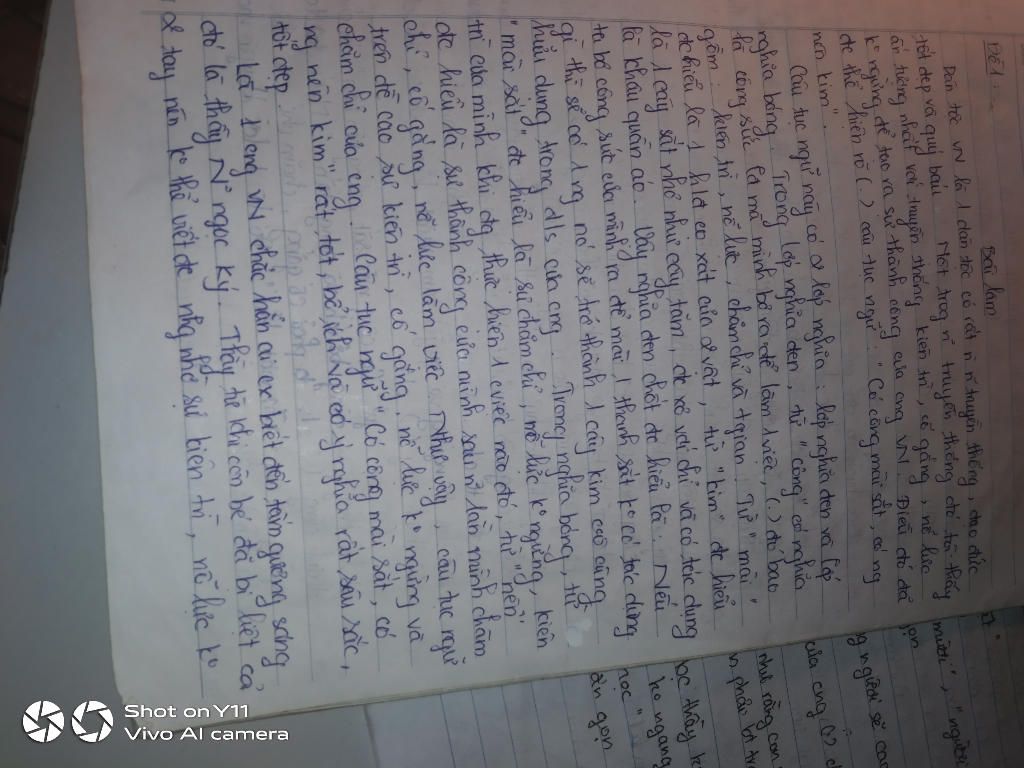 Đề 1:
Bài làm
Dân tộc VN là 1 dân tộc có rất n` truyền thống, đạo đức
tốt đẹp và quý báu. Một trog n~ truyền thống đó ta thấy
ấn tượng nhất với truyền thống kiên trì, cố gắng, nỗ lực
ko ngừng để tạo ra sự thành công của cng VN. Điều đó đã
đc thể hiện rõ (.) câu tục ngữ: "Có công mài sắt, có ng
nên kim".
Câu tục ngữ này có 2 lớp nghĩa: lớp nghĩa đen và lớp
nghĩa bóng. Trong lớp nghĩa đen, từ "công" có nghĩa
là công sức là mà mình bỏ ra để làm 1 việc, (.) đó bao
gồm: kiên trì, nỗ lực, chăm chỉ và tgian. Từ "mài"
đc hiểu là 1 hđ cọ xát của 2 vật, từ "kim" đc hiểu
là 1 cây sắt nhỏ như cây tăm, đc rõ với chỉ và có tác dụng
là khâu quần áo. Vậy nghĩa đen chốt đc hiểu là: Nếu
ta bỏ công sức của mình ra để mài 1 thanh sắt ko có tác dụng
gì thì sẽ có 1 ng nó sẽ trở thành 1 cây kim vô cùng
hữu dụng trong đ/s của cng. Trong nghĩa bóng, từ
"mài sắt" đc hiểu là sự chăm chỉ, nỗ lực ko ngừng, kiên
trì của mình khi đg thực hiện 1 việc nào đó, từ "nên
đc hiểu là sự thành công của mình sau lần mình chăm
chỉ, cố gắng, nỗ lực làm việc. Như vậy, câu tục ngữ
trên đề cao sự kiên trì, cố gắng, nỗ lực ko ngừng và
chăm chỉ của cng. Câu tục ngữ "Có công mài sắt, có
ng nên kim" rất tốt, bổ ích và có ý nghĩa rất sâu sắc,
tốt đẹp
Lối sống VN chắc hẳn ai cx biết đến tấm gương sáng
đó là thầy Ng~ Ngọc Ký. Thầy từ khi còn bé đã bị liệt cả
2 tay nên ko thể viết đc nhg nhờ sự kiên trì, nỗ lực ko
người", "người
của cng (.)
học thầy
ko ngang
học"
Shot on Y11
Vivo AI camera